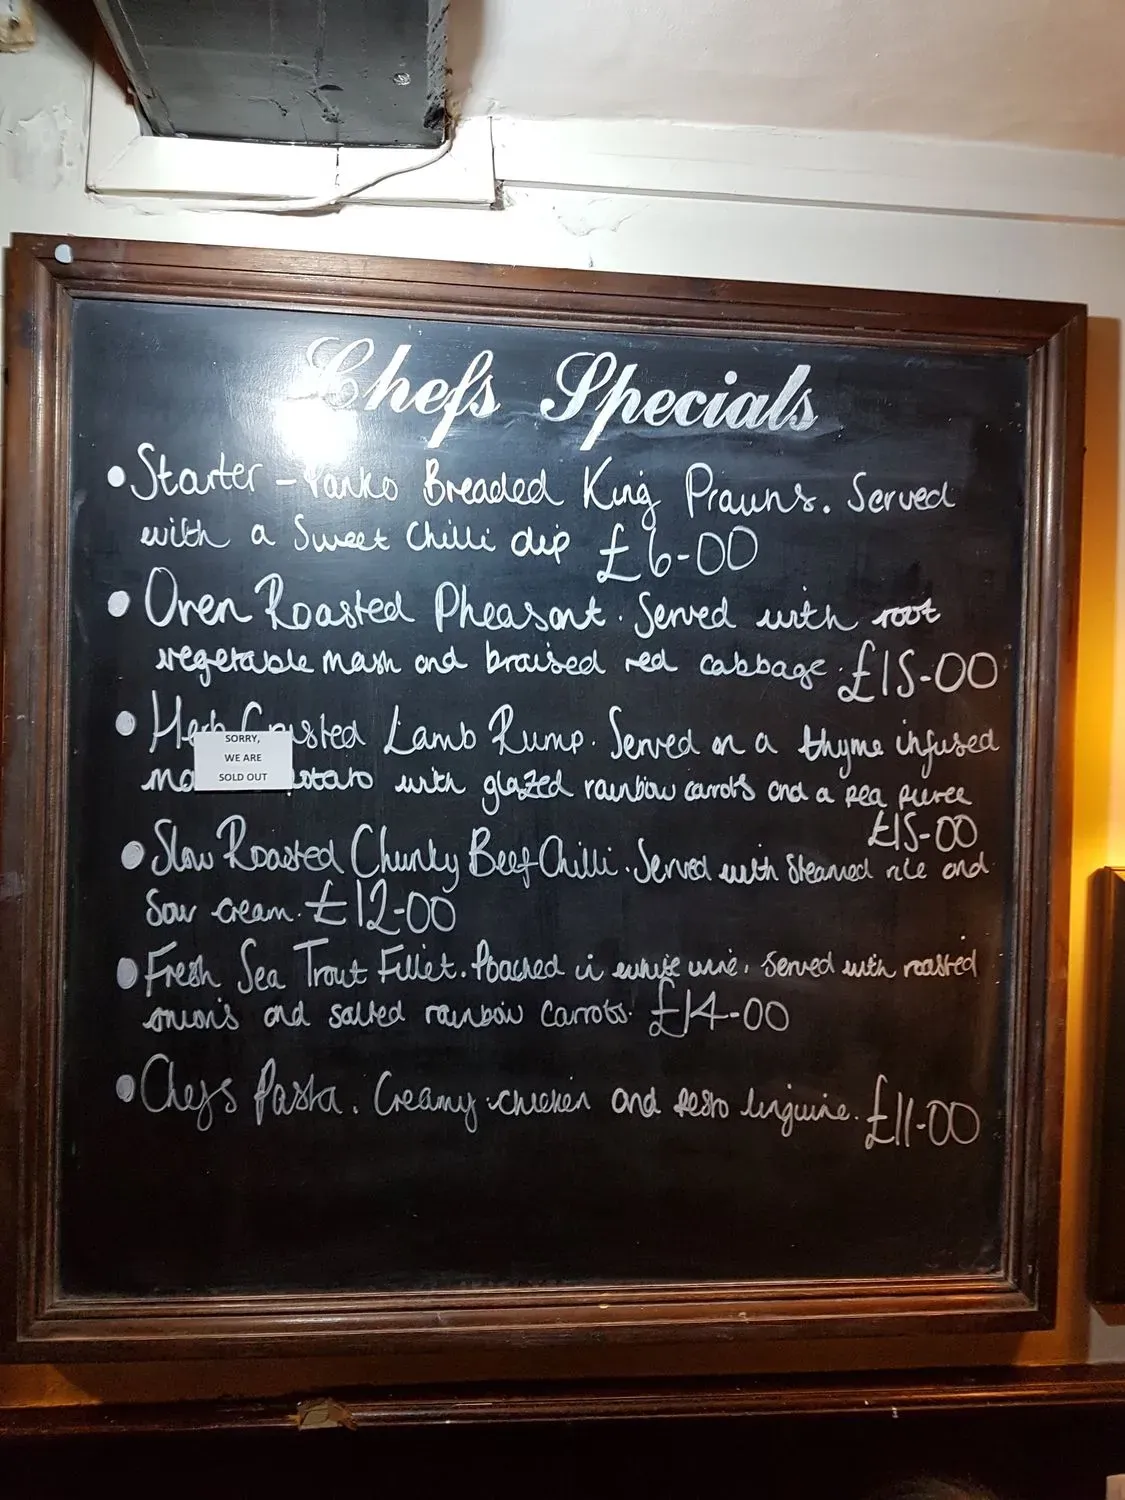 Chefs Specials
• Starter - Panko Breaded King Prawns. Served
with a Sweet Chilli dip £6-00
• Oven Roasted Pheasant. Served with root
vegetable mash and braised red cabbage. £15-00
• Herb Crusted Lamb Rump. Served on a thyme infused
SORRY,
WE ARE
SOLD OUT
with glazed rainbow carrots and a pea puree
£15-00
• Slow Roasted Chunky Beef Chilli. Served with Steamed rice and
Sour cream. £12-00
• Fresh Sea Trout Fillet. Poached in white wine, served with roasted
onions and salted rainbow carrots. £14-00
• Chefs Pasta. Creamy chicken and pesto linguine. £11-00